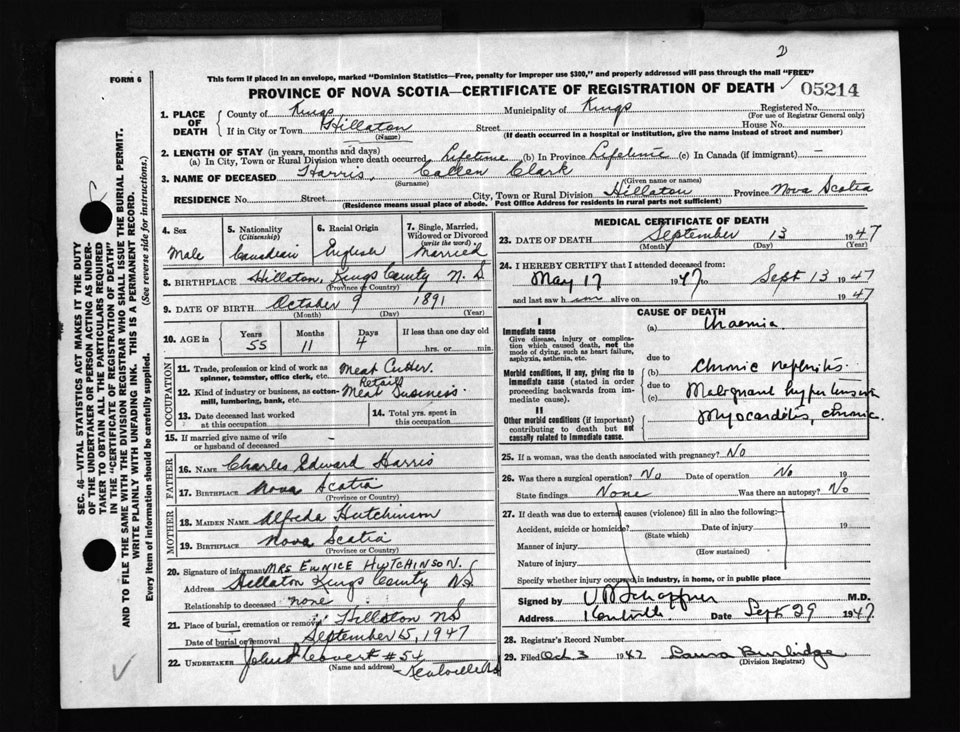 2
FORM 6
This form if placed in an envelope, marked "Dominion Statistics—Free, penalty for improper use $300," and properly addressed will pass through the mail "FREE"
PROVINCE OF NOVA SCOTIA—CERTIFICATE OF REGISTRATION OF DEATH
05214
1. PLACE OF DEATH
County of Kings Municipality of Kings Registered No.
(For use of Registrar General only)
If in City or Town Hillaton Street House No.
(Name) (If death occurred in a hospital or institution, give the name instead of street and number)
2. LENGTH OF STAY (in years, months and days)
(a) In City, Town or Rural Division where death occurred Lifetime (b) In Province Lifetime (c) In Canada (if immigrant) —
3. NAME OF DECEASED Harris, Callen Clark
(Surname) (Given name or names)
RESIDENCE No. Street City, Town or Rural Division Hillaton Province Nova Scotia
(Residence means usual place of abode. Post Office Address for residents in rural parts not sufficient)
4. Sex
Male
5. Nationality
(Citizenship)
Canadian
6. Racial Origin
English
7. Single, Married, Widowed or Divorced
(write the word)
Married
8. BIRTHPLACE Hillaton, Kings County N. S
(Province or Country)
9. DATE OF BIRTH October 9 1891
(Month) (Day) (Year)
10. AGE in
Years Months Days If less than one day old
55 11 4 hrs. or min.
OCCUPATION
11. Trade, profession or kind of work as spinner, teamster, office clerk, etc. Meat Cutter.
12. Kind of industry or business, as cotton-mill, lumbering, bank, etc. Retail Meat Business
13. Date deceased last worked at this occupation
14. Total yrs. spent in this occupation
15. If married give name of wife or husband of deceased
FATHER
16. NAME Charles Edward Harris
17. BIRTHPLACE Nova Scotia
(Province or Country)
MOTHER
18. MAIDEN NAME Alfreda Hutchinson
19. BIRTHPLACE Nova Scotia
(Province or Country)
20. Signature of informant MRS EUNICE HUTCHINSON.
Address Hillaton Kings County NS
Relationship to deceased none
21. Place of burial, cremation or removal Hillaton NS
Date of burial or removal September 15, 1947
22. UNDERTAKER #54 Kentville NS
(Name and address)
MEDICAL CERTIFICATE OF DEATH
23. DATE OF DEATH September 13 1947
(Month) (Day) (Year)
24. I HEREBY CERTIFY that I attended deceased from:
May 17 1947 Sept 13 1947
and last saw h im alive on 1947
CAUSE OF DEATH
I
Immediate cause
Give disease, injury or complication which caused death, not the mode of dying, such as heart failure, asphyxia, asthenia, etc.
(a) Uraemia.
due to
Morbid conditions, if any, giving rise to immediate cause (stated in order proceeding backwards from immediate cause).
(b) Chronic nephritis.
due to
(c) Malignant hypertension
II
Other morbid conditions (if important) contributing to death but not causally related to immediate cause.
Myocarditis, chronic.
25. If a woman, was the death associated with pregnancy? No
26. Was there a surgical operation? No Date of operation No 19
State findings None Was there an autopsy? No
27. If death was due to external causes (violence) fill in also the following:—
Accident, suicide or homicide? Date of injury 19
(State which)
Manner of injury
(How sustained)
Nature of injury
Specify whether injury occurred in industry, in home, or in public place
Signed by M.D.
Address Kentville Date Sept 29 1947
28. Registrar's Record Number
29. Filed Oct 3 1947 Laura Burbidge
(Division Registrar)
SEC. 46—VITAL STATISTICS ACT MAKES IT THE DUTY
OF THE UNDERTAKER OR PERSON ACTING AS UNDER-
TAKER TO OBTAIN ALL THE PARTICULARS REQUIRED
IN THE "CERTIFICATE OF REGISTRATION OF DEATH"
AND TO FILE THE SAME WITH THE DIVISION REGISTRAR WHO SHALL ISSUE THE BURIAL PERMIT.
WRITE PLAINLY WITH UNFADING INK. THIS IS A PERMANENT RECORD.
Every item of information should be carefully supplied. (See reverse side for instructions.)